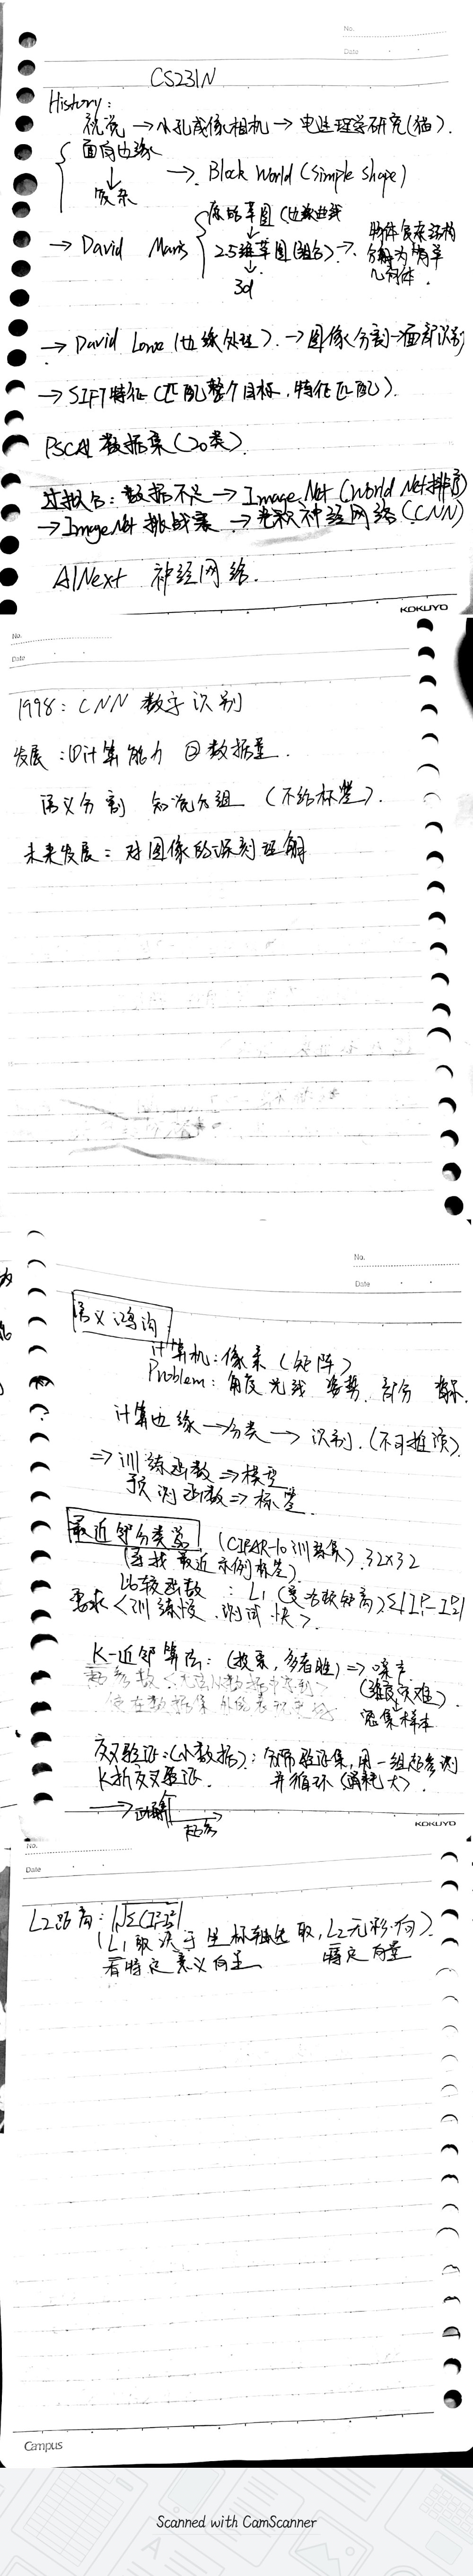 No.
Date
CS231N
History:
视觉 → 小孔成像相机 → 电生理学研究(猫).
面向边缘
↓
复杂
→. Block World (simple shape)
→ David Marr
原始草图 (边缘曲线
↓
2.5维草图(组合) →.
↓
3d
物体复杂结构
分解为简单
几何体.
→ David Lowe (边缘处理). → 图像分割→面部识别
→ SIFT特征 (匹配整个目标, 特征匹配).
PSCAL 数据集(20类).
过拟合: 数据不足 → Image Net (World Net排序)
→ ImageNet 挑战赛 → 卷积神经网络 (CNN)
AlNext 神经网络.
KOKUYO
No.
Date
1998: CNN 数字识别
发展: ①计算能力 ②数据量.
语义分割 知觉分组 (不给标签).
未来发展: 对图像的深刻理解
No.
Date
语义鸿沟
计算机: 像素 (矩阵)
Problem: 角度 光线 姿势. 部分
计算边缘 → 分类 → 识别. (不可推演).
⇒ 训练函数 ⇒ 模型
预测函数 ⇒ 标签.
最近邻分类器 (CIFAR-10训练集). 32×32
(寻找最近示例标签).
比较函数 : L1 (曼哈顿距离) Σ|I1-I2|
要求<训练慢. 测试快>.
K-近邻算法: (投票, 多者胜) ⇒ 噪声
(维度灾难)
密集样本
交叉验证: (小数据): 分带验证集, 用一组超参测
K折交叉验证. 并循环 (消耗大).
超参
KOKUYO
No.
Date
L2距离:
(L1取决于坐标轴选取, L2无影响).
看特定意义向量 特定向量
Campus
Scanned with CamScanner